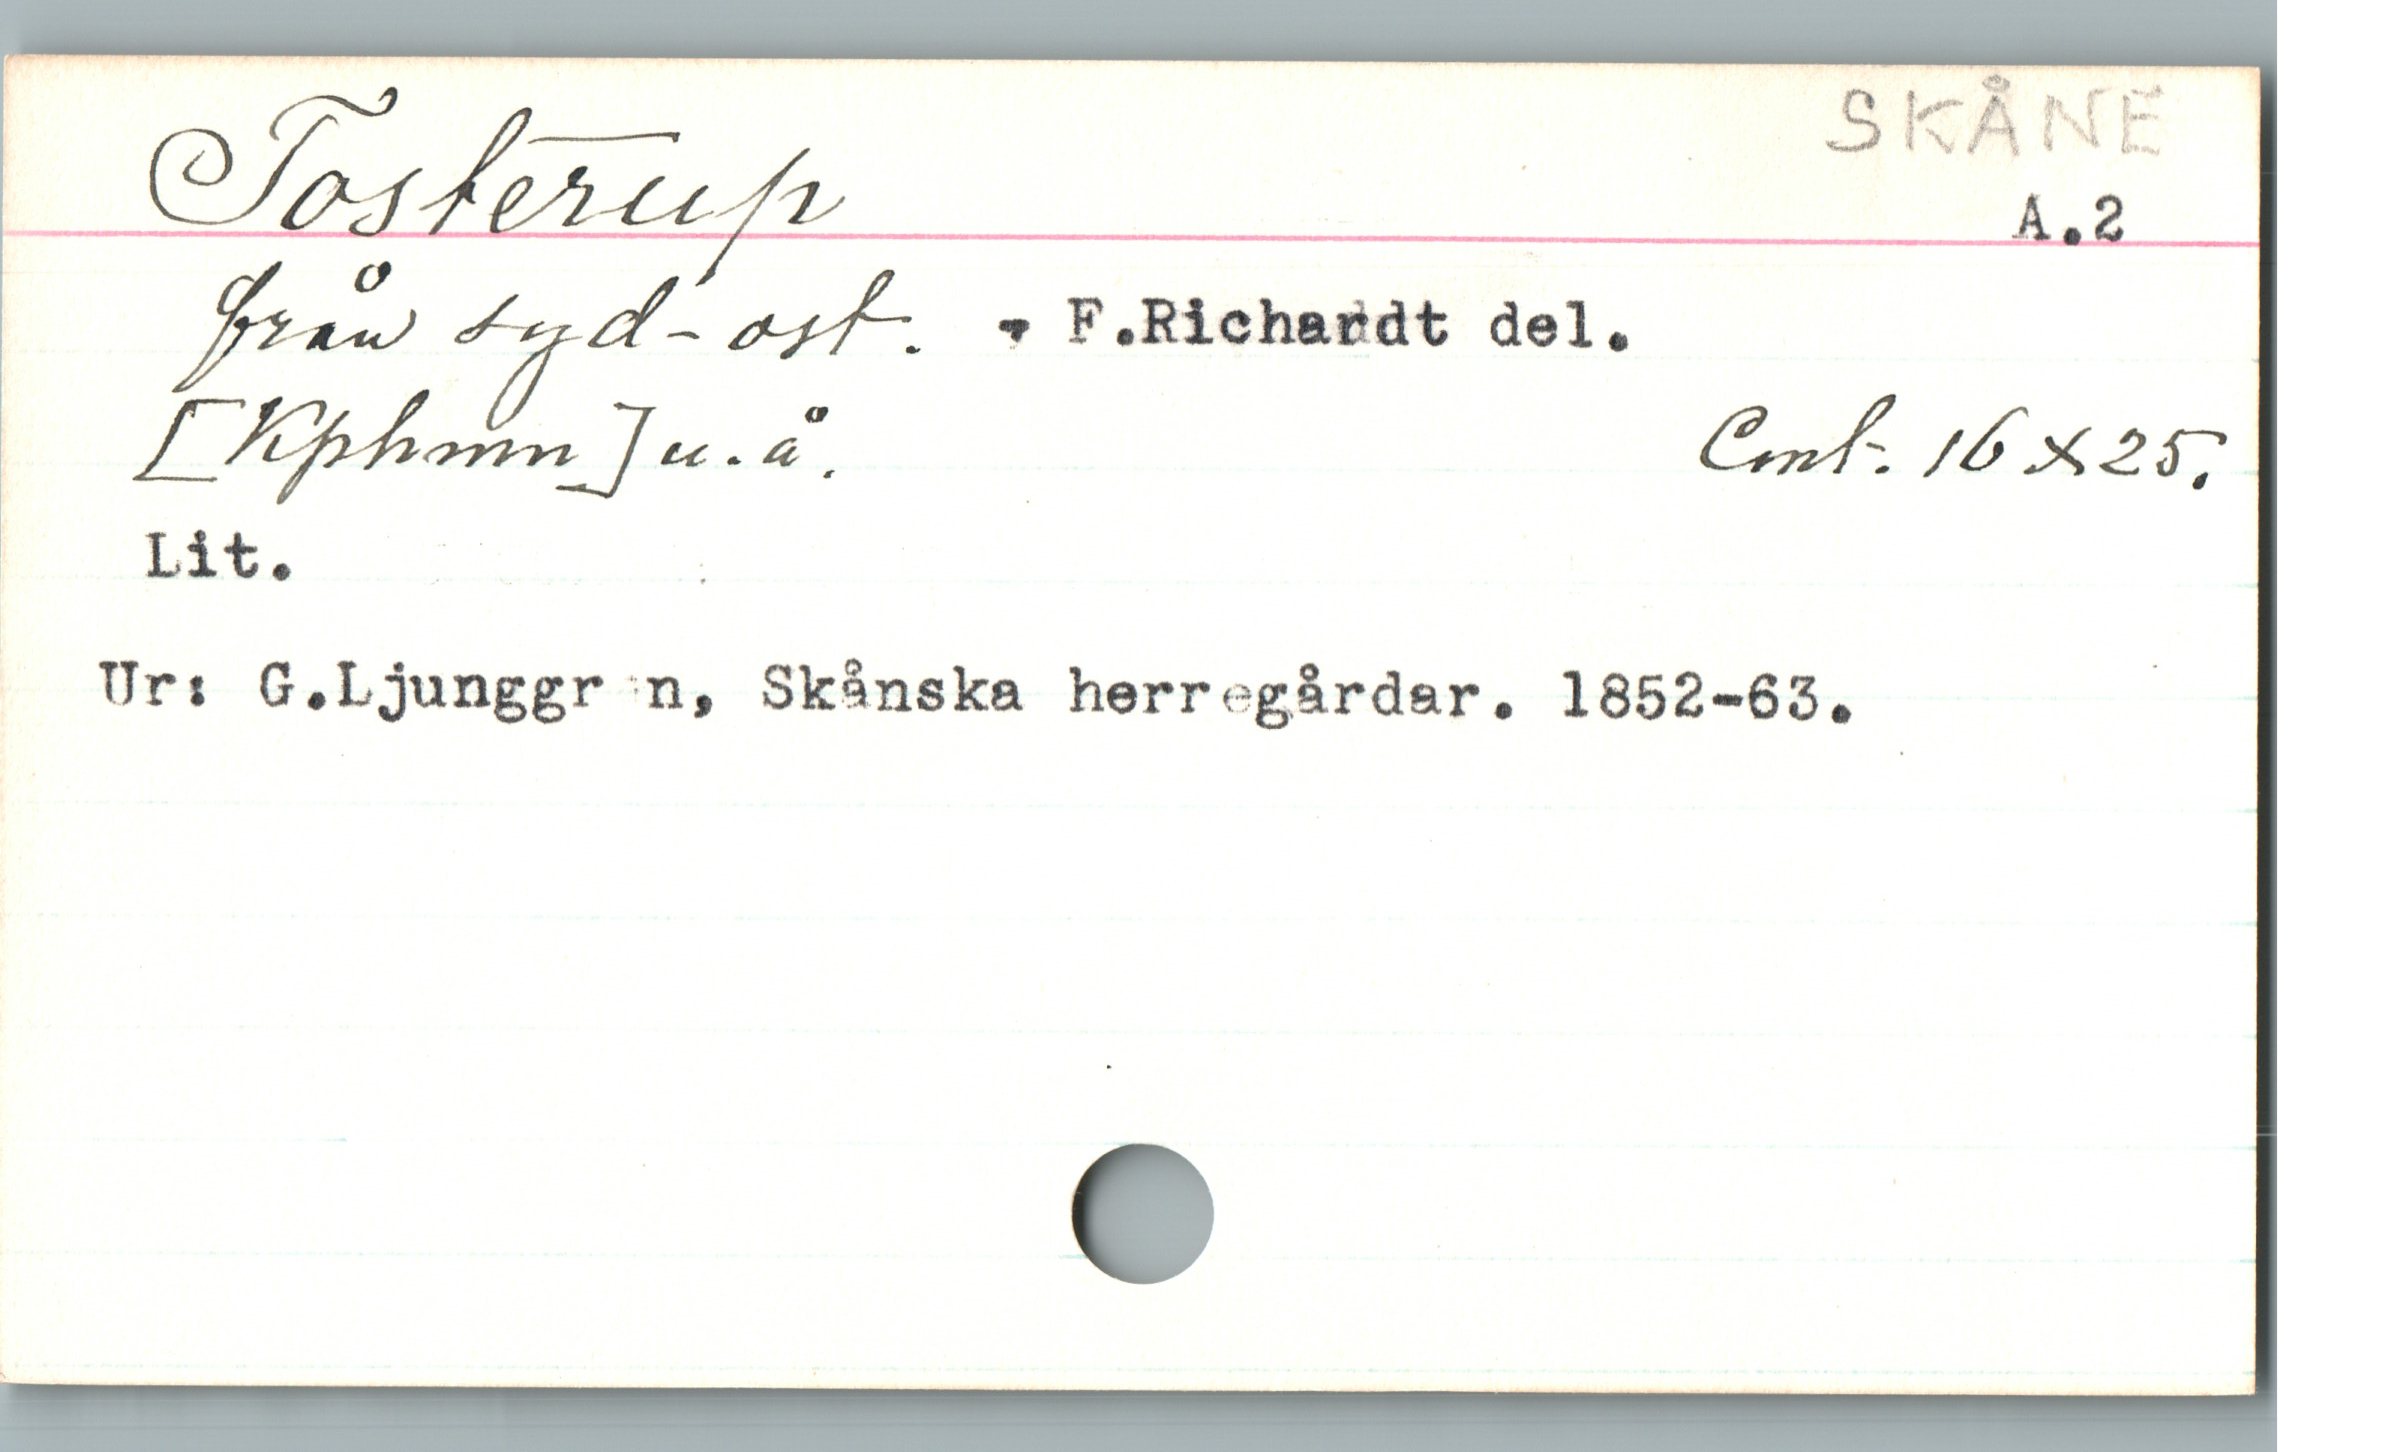 SKÅNE
Tosterup
A.2
från syd-ost. - F.Richardt del.
[Kphmn] u.å. Cmt. 16 x 25.
Lit.
Ur: G.Ljunggren, Skånska herregårdar. 1852-63.